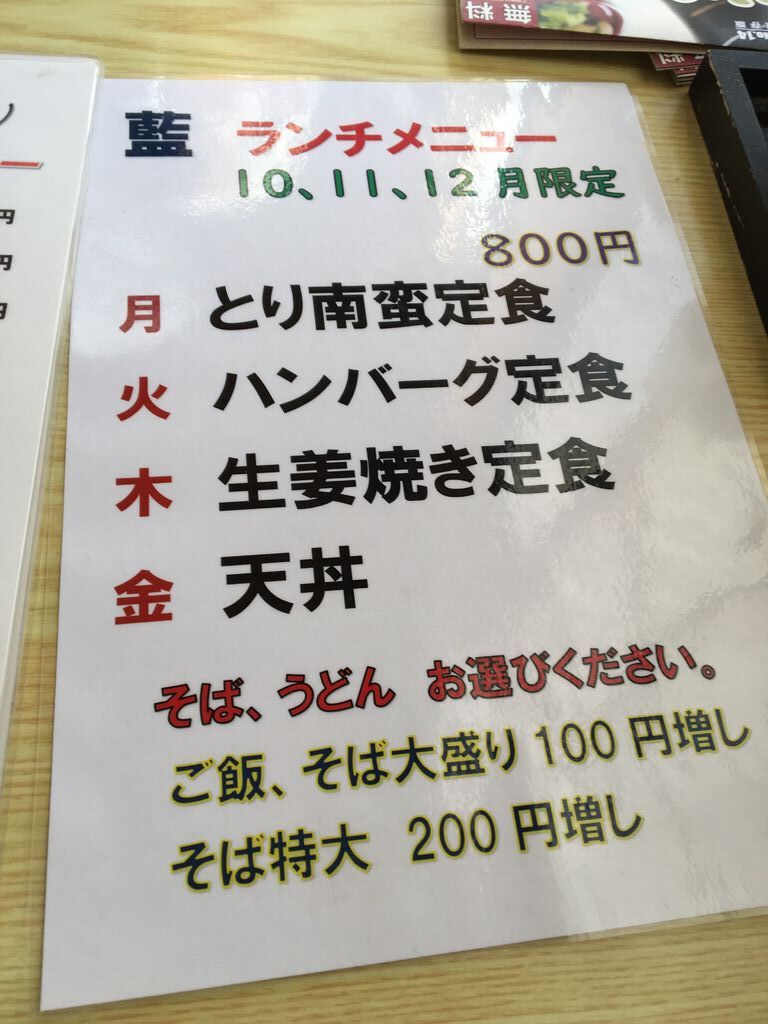 藍 ランチメニュー
10、11、12月限定
800円
月 とり南蛮定食
火 ハンバーグ定食
木 生姜焼き定食
金 天丼
そば、うどん お選びください。
ご飯、そば大盛り 100 円増し
そば特大 200 円増し
円
円
無料
No.14